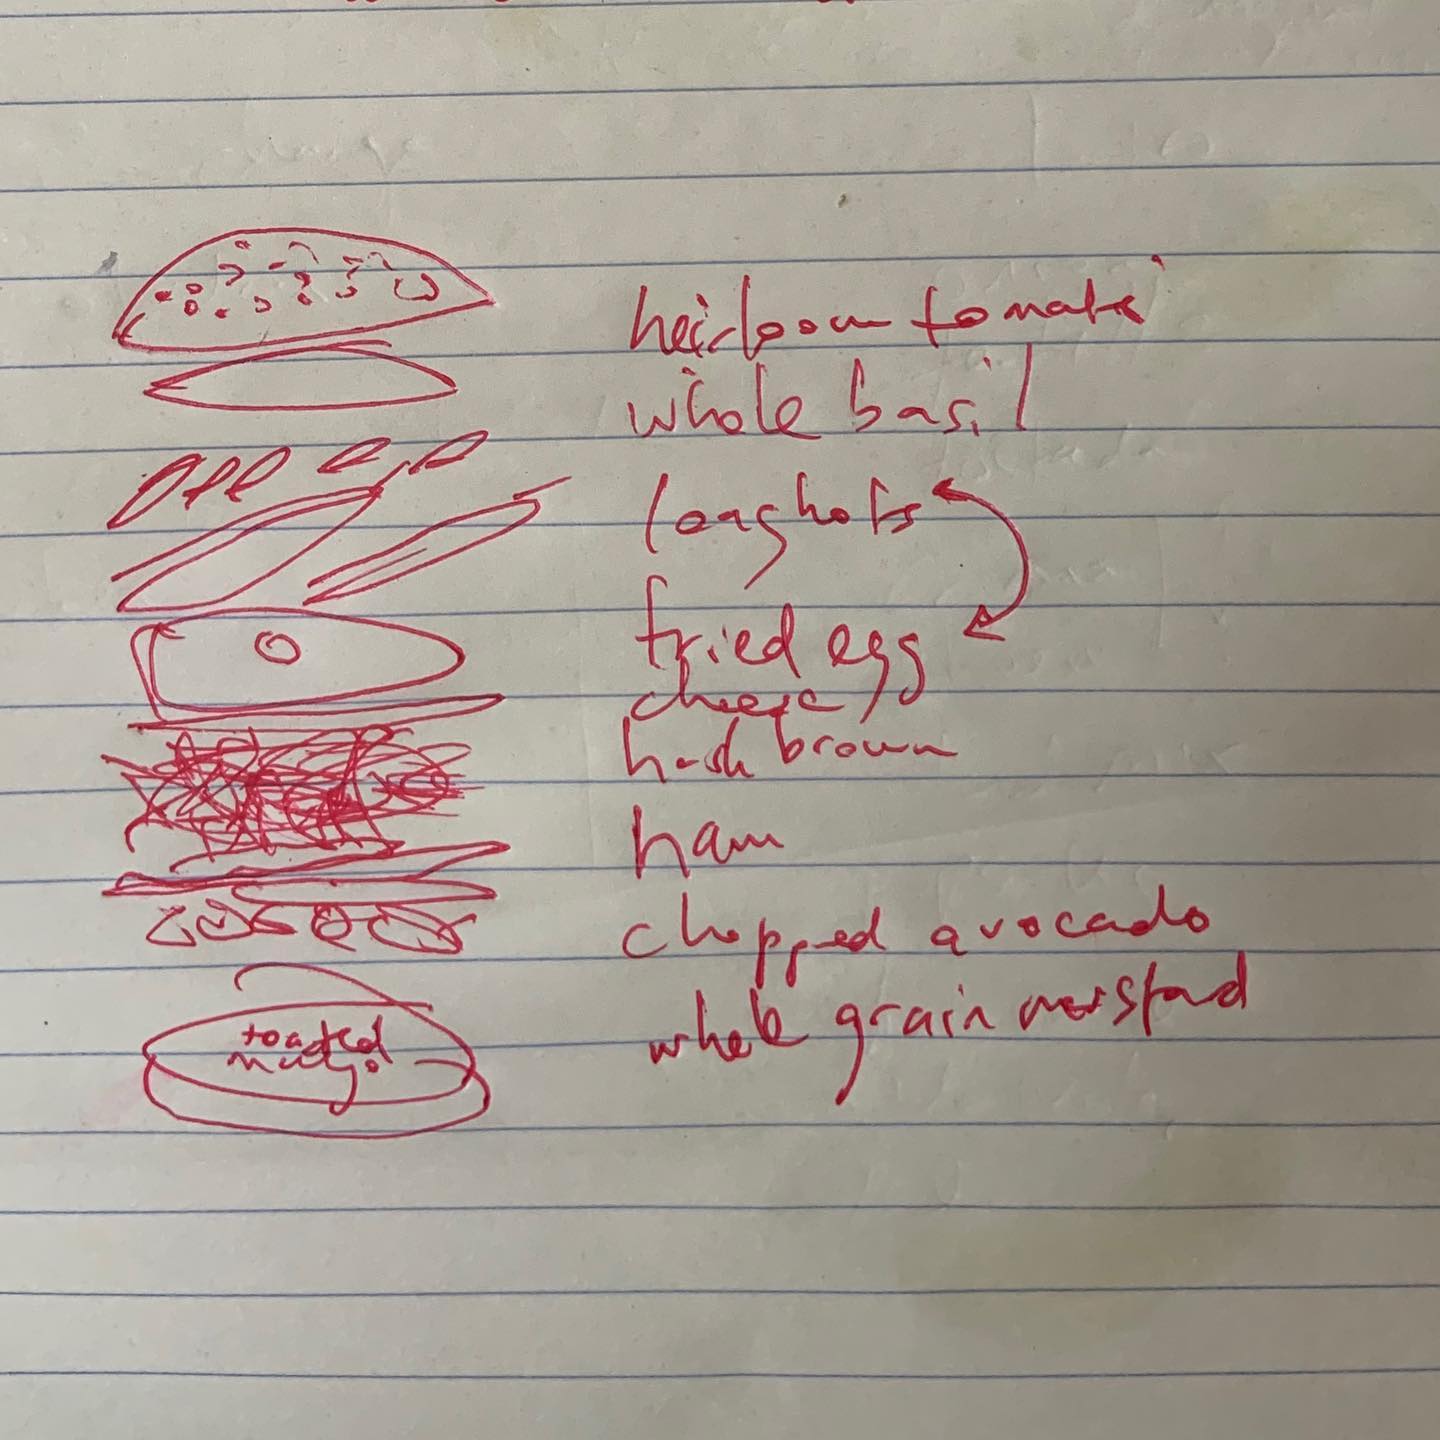 heirloom tomato
whole basil
longhots
fried egg
cheese
hash brown
ham
chopped avocado
whole grain mustard
toasted